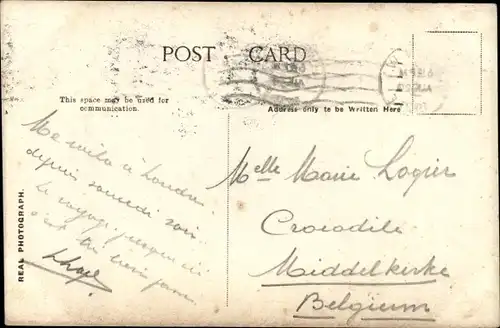 POST CARD
This space may be used for
communication.
Address only to be Written Here
REAL PHOTOGRAPH.
Me voilà à Londres
depuis samedi soir.
le voyage jusque ici
s'est
Melle Marie Logier
Crocodile
Middelkerke
Belgium